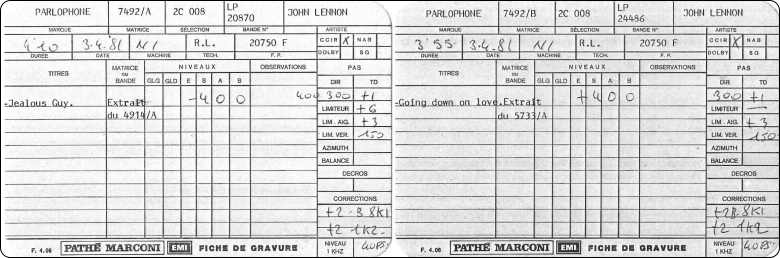 PARLOPHONE 7492/A 2C 008 LP 20870 JOHN LENNON
MARQUE MATRICE SÉLECTION BANDE N° ARTISTE
4'10 3.4.81 N1 R.L. 20750 F CCIR X NAB
DOLBY SQ
DURÉE DATE MACHINE TECH. F.P.
TITRES MATRICE OU BANDE NIVEAUX OBSERVATIONS PAS
GLG GLD E S A B DIR TD
-Jealous Guy. Extrait -4 0 0 400 300 +1
du 4914/A LIMITEUR +6
LIM. AIG. +3
LIM. VER. 150
AZIMUTH
BALANCE
DECROS
CORRECTIONS
+2 1K2
F. 4.06 PATHÉ MARCONI EMI FICHE DE GRAVURE NIVEAU 1 KHZ
PARLOPHONE 7492/B 2C 008 LP 24486 JOHN LENNON
MARQUE MATRICE SÉLECTION BANDE N° ARTISTE
3'55 3.4.81 N1 R.L. 20750 F CCIR X NAB
DOLBY SQ
DURÉE DATE MACHINE TECH. F.P.
TITRES MATRICE OU BANDE NIVEAUX OBSERVATIONS PAS
GLG GLD E S A B DIR TD
-Going down on love. Extrait +4 0 0 300 +1
du 5733/A LIMITEUR —
LIM. AIG. +3
LIM. VER. 150
AZIMUTH
BALANCE
DECROS
CORRECTIONS
+2 1K2
F. 4.06 PATHÉ MARCONI EMI FICHE DE GRAVURE NIVEAU 1 KHZ